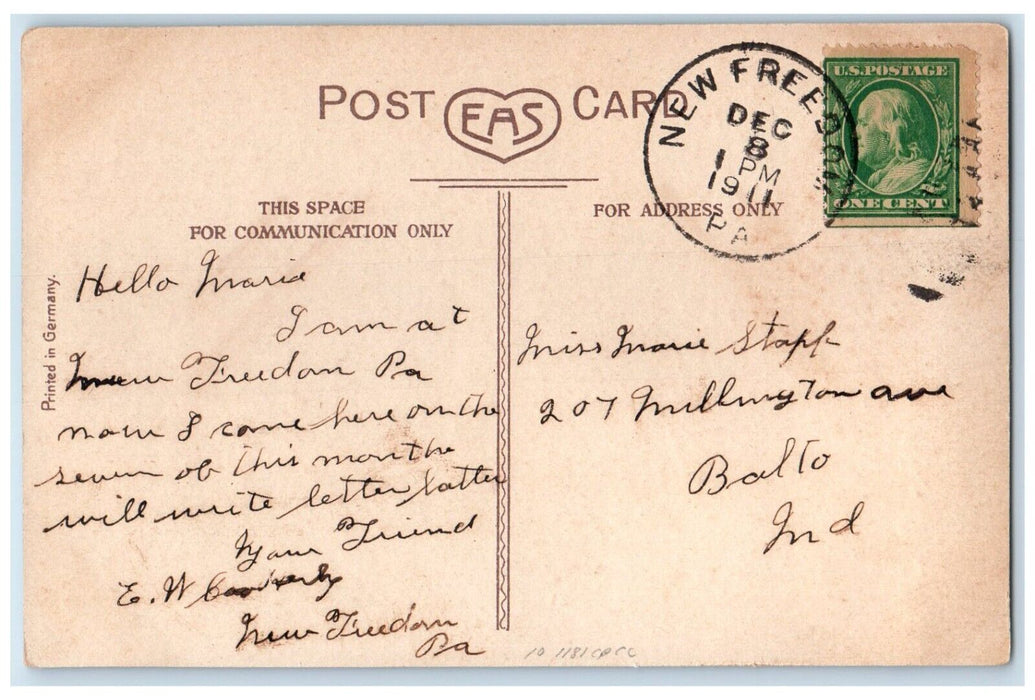 POST EAS CARD
NEW FREEDOM
DEC
8
1 PM
1911
PA
U.S. POSTAGE
ONE CENT
THIS SPACE
FOR COMMUNICATION ONLY
FOR ADDRESS ONLY
Printed in Germany.
Hello Marie
I am at
New Freedom Pa
now I come here on the
seven of this monthe
will write letter latter
Your Friend
E. W
New Freedom
Pa
Miss Marie Stapf
207 Millington ave
Balto
Md
10 1181